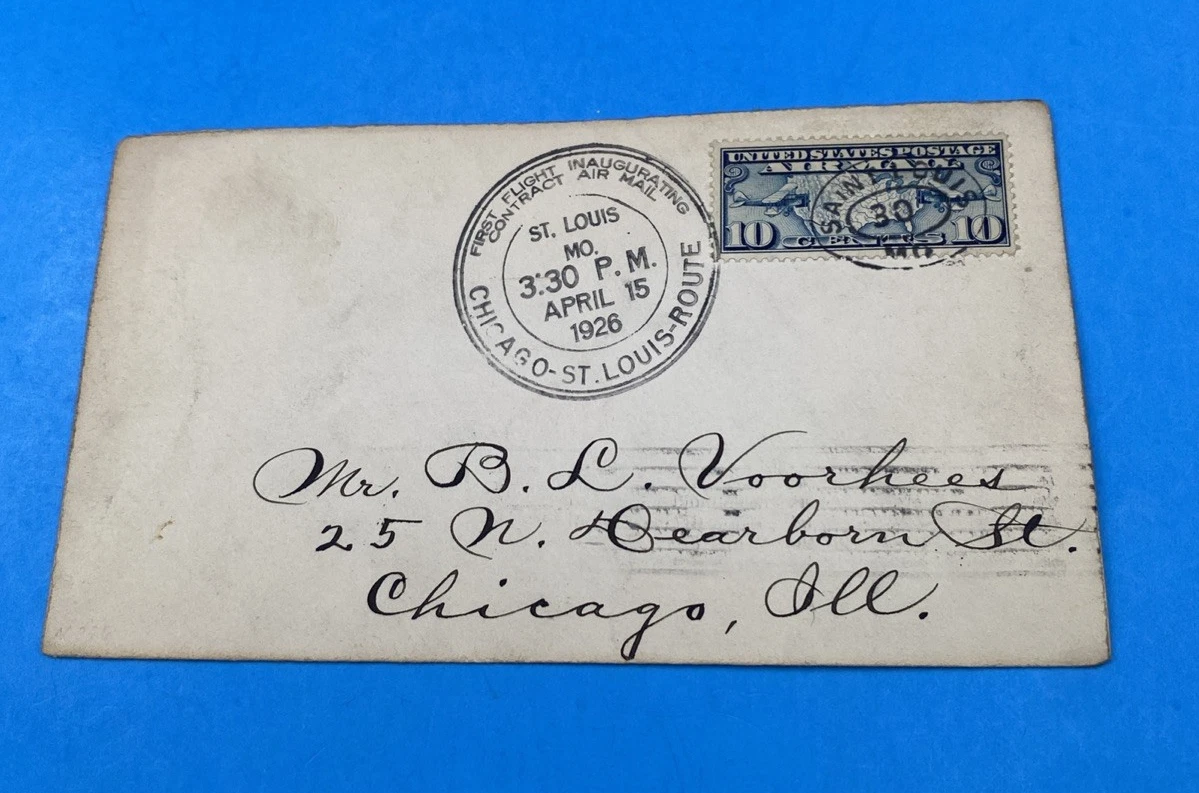 FIRST FLIGHT INAUGURATING
CONTRACT AIR MAIL
ST. LOUIS
MO.
3:30 P.M.
APRIL 15
1926
CHICAGO-ST. LOUIS-ROUTE
UNITED STATES POSTAGE
AIR MAIL
10 CENTS 10
SAINT LOUIS
30
MO.
Mr. B. L. Voorhees
25 N. Dearborn St.
Chicago, Ill.